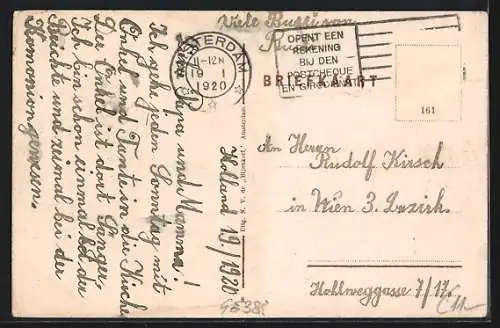 Viele Bussi von
Rudi
AMSTERDAM
11-12N
19 I
1920
OPENT EEN
REKENING
BIJ DEN
POSTCHEQUE
EN GIRODIENST
BRIEFKAART
161
Holland 19./1 1920
Papa und Mamma!
Ich gehe jeden Sonntag mit
Onkel und Tante in die Kirche
Der Onkel ist dort Sänger.
Ich bin schon einmal bei der
Beichte und zweimal bei der
Komonion gewesen.
Uitg. N. V. de „Rijnkart", Amsterdam
An Herrn
Rudolf Kirsch
in Wien 3. Bezirk.
Hohlweggasse 7/17.